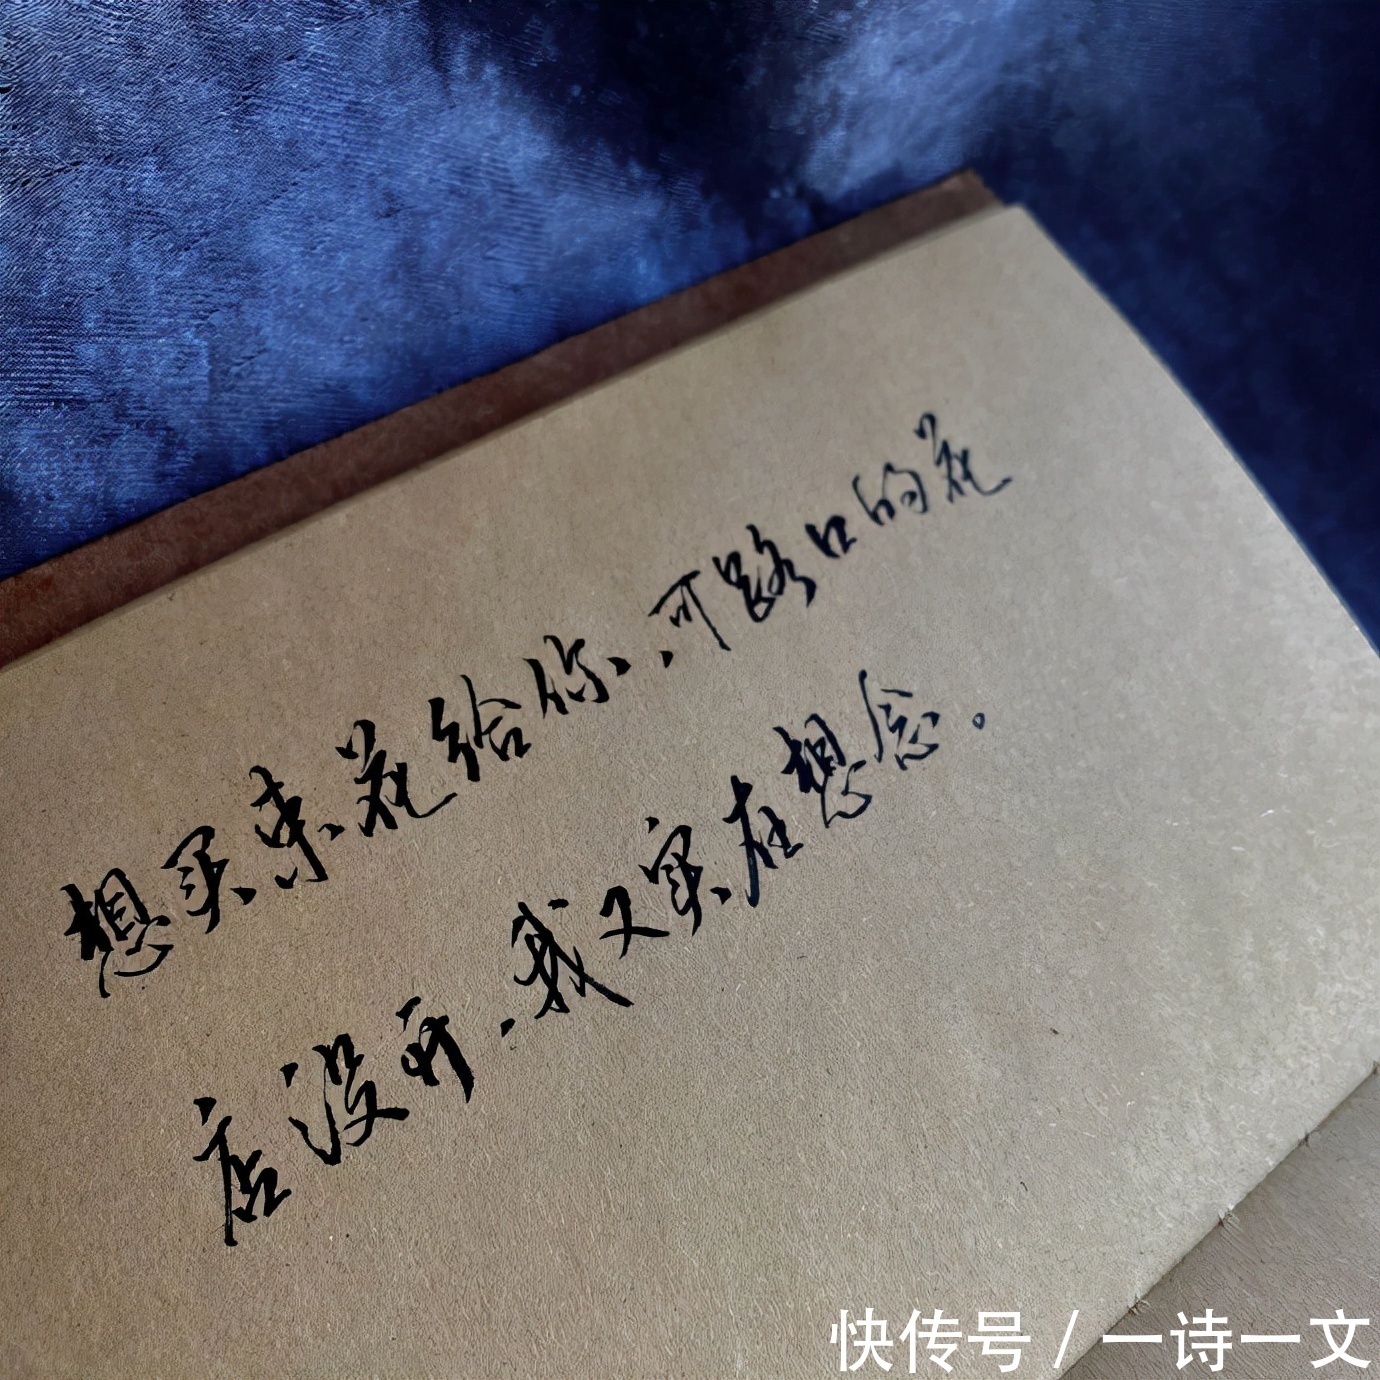 想买束花给你,可路口的花
店没开,我又实在想念。
快传号/一诗一文